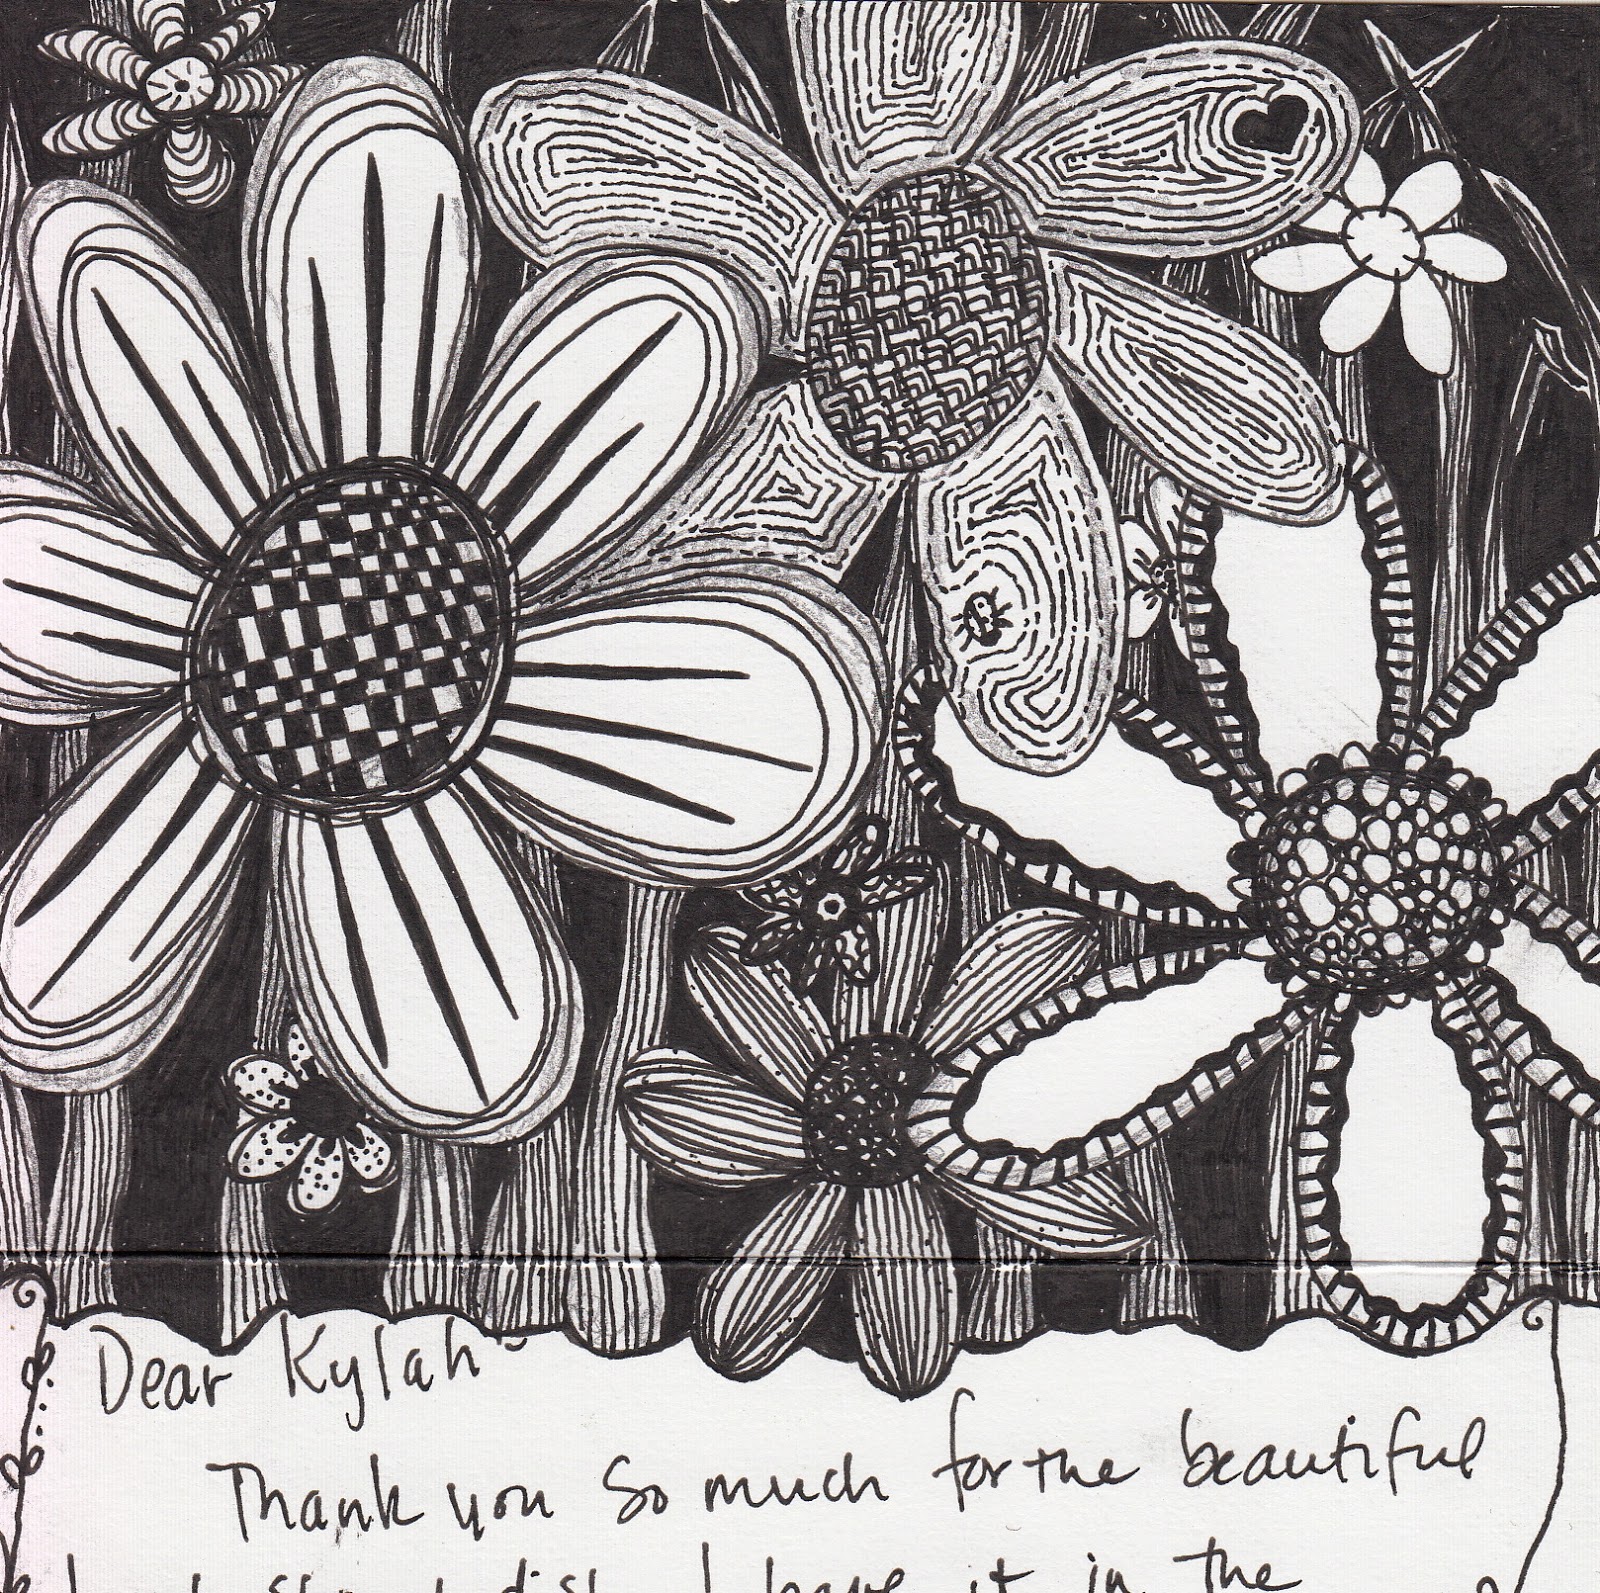 Dear Kylah~
Thank you so much for the beautiful
dish. I have it in the